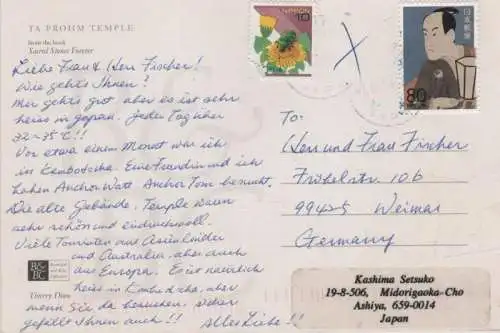 TA PROHM TEMPLE
from the book
Sacred Stones Forever
Liebe Frau & Herr Fischer!
Wie geht's Ihnen?
Mir geht's gut, aber es ist sehr
heiss in Japan. Jeden Tag über
32~35°C!!
Vor etwa einem Monat war ich
in Kambodscha. Eine Freundin und ich
haben Anchor Watt Anchor Tom besucht.
Die alte Gebäude, Temple waren
sehr schön und eindrucksvoll.
Viele Touristen aus Asienländer
und Australia, aber auch
aus Europa. Es ist natürlich
heiss in Kambodcha, aber
wenn Sie da besuchen, sicher
gefällt Ihnen auch!!
Alles Liebe!!
Thierry Diwo
NIPPON
10
日本郵便
80
To:
Herr und Frau Fischer
99425 Weimar
Germany
Kashima Setsuko
19-8-506, Midorigaoka-Cho
Ashiya, 659-0014
Japan